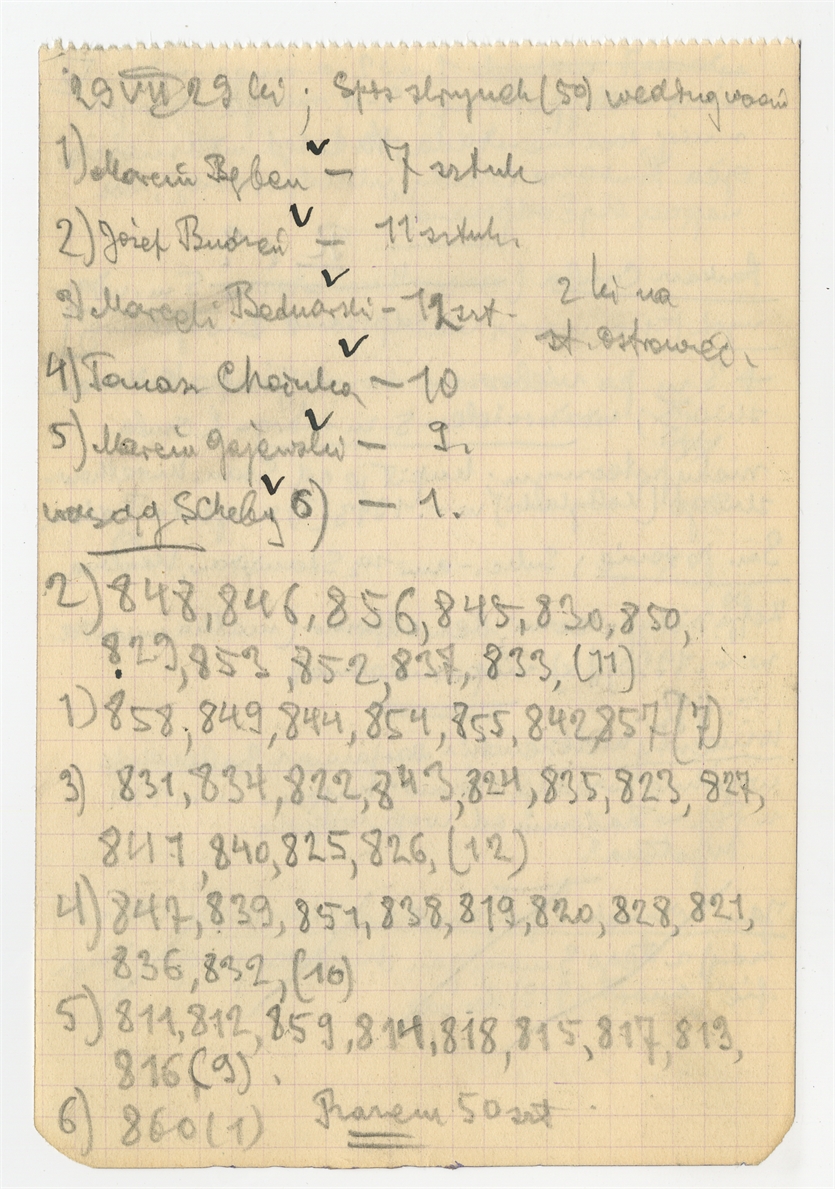 29 VII 29 ki; Spis skrzynek (50) według wozów
1) Marcin Bęben – 7 sztuk
2) Józef Budzeń – 11 sztuk.
3) Bednarski – 12 szt. 2 ki na
st. Ostrowiec.
4) Tomasz – 10
5) Marcin Gajewski – 9.
Scheby 6) – 1.
2) 848, 846, 856, 845, 830, 850,
829, 853, 852, 837, 833, (11)
1) 858, 849, 844, 854, 855, 842, 857 (7)
3) 831, 834, 822, 843, 824, 835, 823, 827,
841, 840, 825, 826, (12)
4) 847, 839, 851, 838, 819, 820, 828, 821,
836, 832, (10)
5) 811, 812, 859, 814, 818, 815, 817, 813,
816 (9).
6) 860 (1) Razem 50 szt.